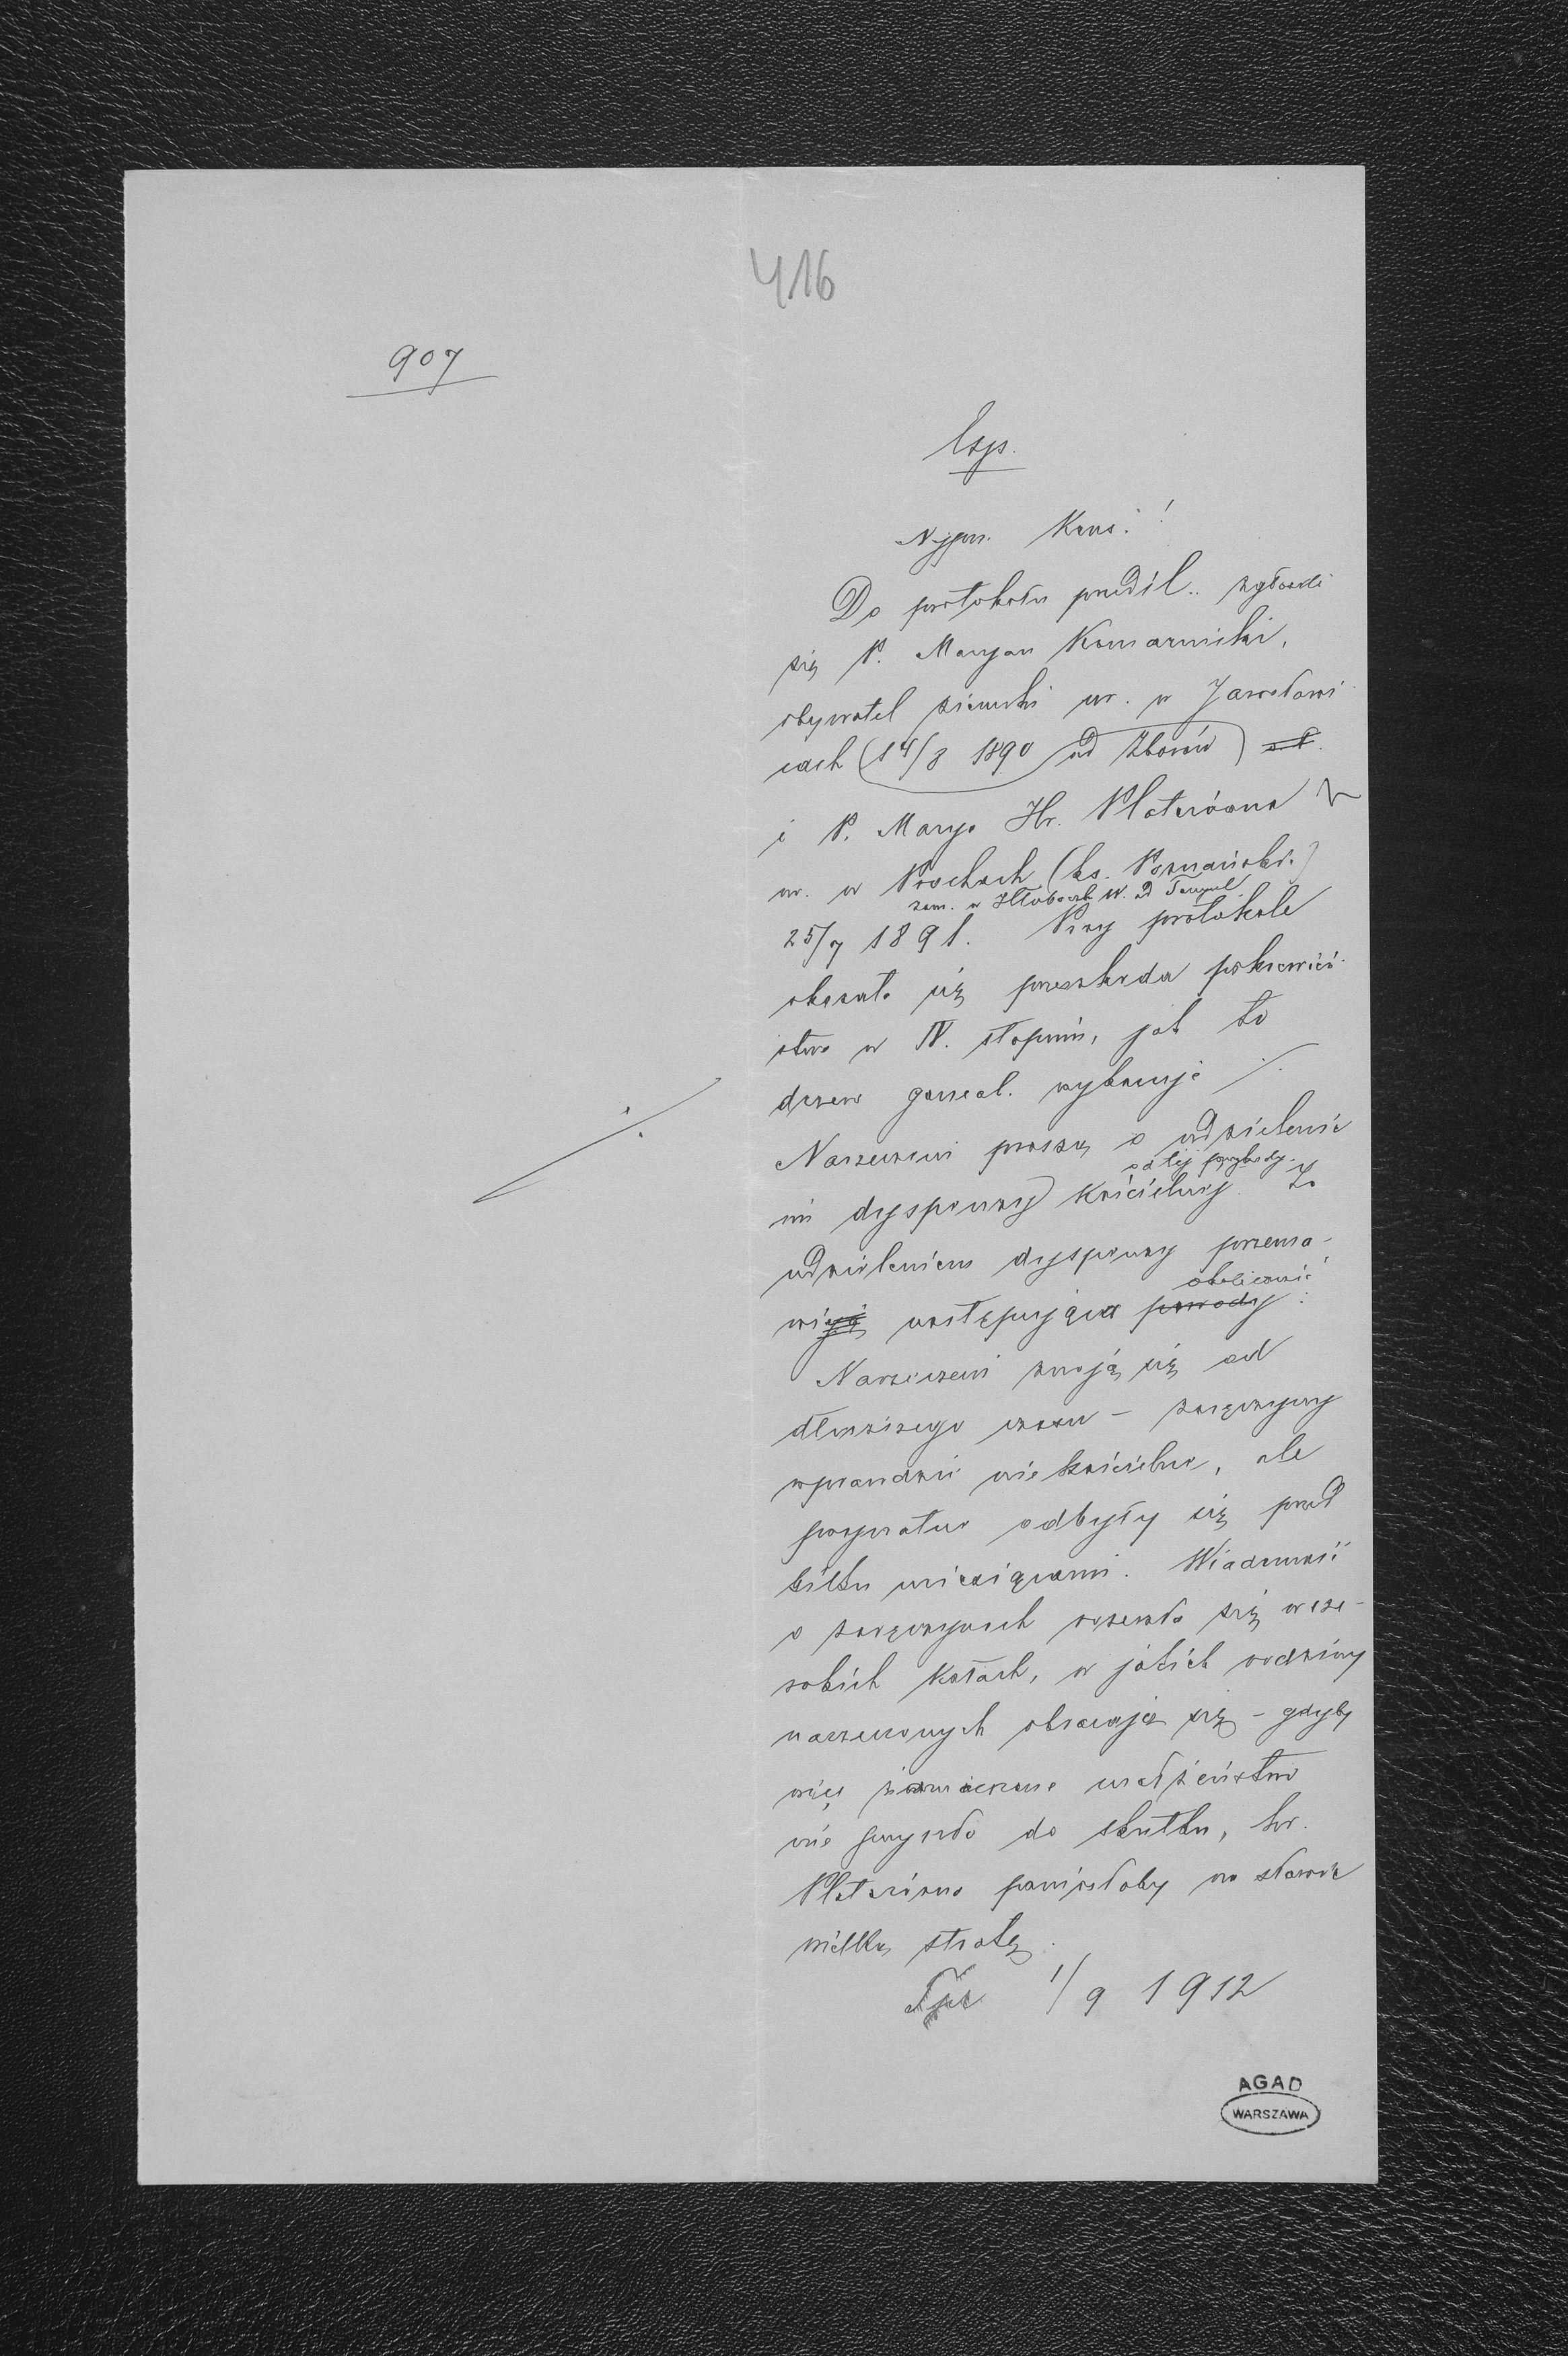 416
907
Esp.
Najprz. Kons.!
Do protokołu przedśl. zgłosili
się P. Maryan Komarnicki,
obywatel ziemski ur. w Jarosławi
cach (14/8 1890 ad Zborów)
i P. Marya Hr. Platerówna
ur. w Prochach (ks. Poznańskie)
zam. w Hłuboczk W. ad Tarnopol
25/7 1891. Przy protokole
okazała się przeszkoda pokrewień-
stwa w IV. stopniu, jak to
drzewo geneal. wykazuje ./.
Narzeczeni proszą o udzielenie
od tej przeszkody.
im dyspenzy kościelnej. Za
udzieleniem dyspenzy przema-
okoliczności
wia następująca powody:
Narzeczeni znają się od
dłuższego czasu – zaręczyny
wprawdzie nie kościelne, ale
prywatne odbyły się przed
kilku miesiącami. Wiadomość
o zaręczynach rozeszła się w sze-
rokich kołach, w jakich rodziny
narzeczonych obracają się – gdyby
więc zamierzone małżeństwo
nie przyszło do skutku, hr.
Platerówna poniosłaby na sławie
wielką stratę.
1/9 1912
AGAD
WARSZAWA